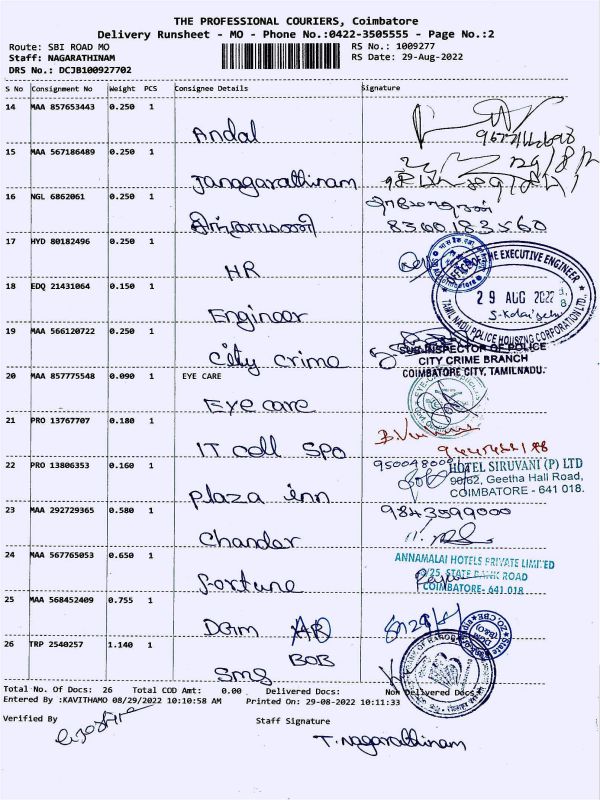 THE PROFESSIONAL COURIERS, Coimbatore
Delivery Runsheet - MO - Phone No.:0422-3505555 - Page No.:2
Route: SBI ROAD MO RS No.: 1009277
Staff: NAGARATHINAM RS Date: 29-Aug-2022
DRS No.: DCJB100927702
S No Consignment No Weight PCS Consignee Details Signature
14 MAA 857653443 0.250 1
Andal
15 MAA 567186489 0.250 1
Janggarathinam
16 NGL 6862061 0.250 1
8300183560
17 HYD 80182496 0.250 1
HR
OFFICE OF THE EXECUTIVE ENGINEER
29 AUG 2022
TAMIL NADU POLICE HOUSING CORPORATION LTD.,
18 EDQ 21431064 0.150 1
Engineer
19 MAA 566120722 0.250 1
City Crime
SUB INSPECTOR OF POLICE
CITY CRIME BRANCH
COIMBATORE CITY, TAMILNADU.
20 MAA 857775548 0.090 1 EYE CARE
Eye care
21 PRO 13767707 0.180 1
IT coll SPO
22 PRO 13806353 0.160 1
Plaza inn
HOTEL SIRUVANI (P) LTD
90/62, Geetha Hall Road,
COIMBATORE - 641 018.
23 MAA 292729365 0.580 1 9843599000
Chander
24 MAA 567765053 0.650 1
ANNAMALAI HOTELS PRIVATE LIMITED
STATE BANK ROAD
COIMBATORE- 641 018
Fortune
25 MAA 568452409 0.755 1
DGm
BOB
26 TRP 2540257 1.140 1
Sms
Total No. Of Docs: 26 Total COD Amt: 0.00 Delivered Docs: Non Delivered Docs:
Entered By :KAVITHAMO 08/29/2022 10:10:58 AM Printed On: 29-08-2022 10:11:33
Verified By Staff Signature
T. Nagarathinam